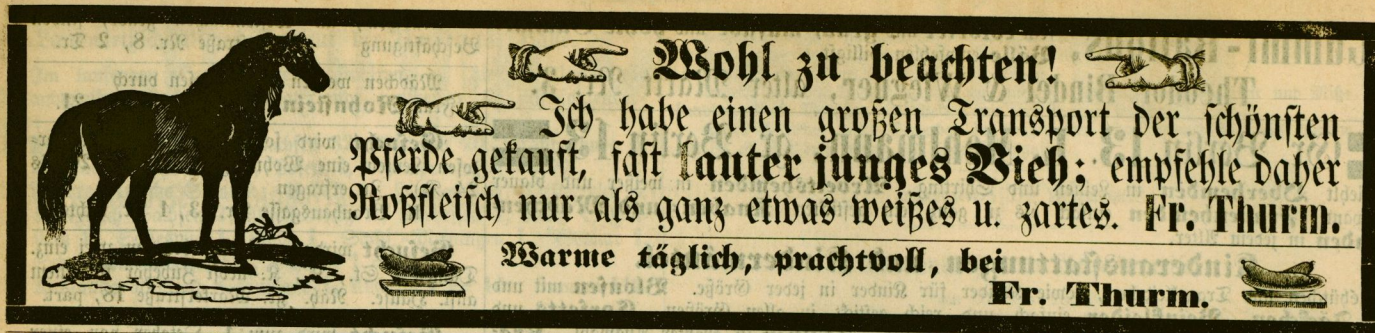 Wohl zu beachten!
Ich habe einen großen Transport der schönsten
Pferde gekauft, fast lauter junges Vieh; empfehle daher
Roßfleisch nur als ganz etwas weißes u. zartes. Fr. Thurm.
Warme täglich, prachtvoll, bei
Fr. Thurm.